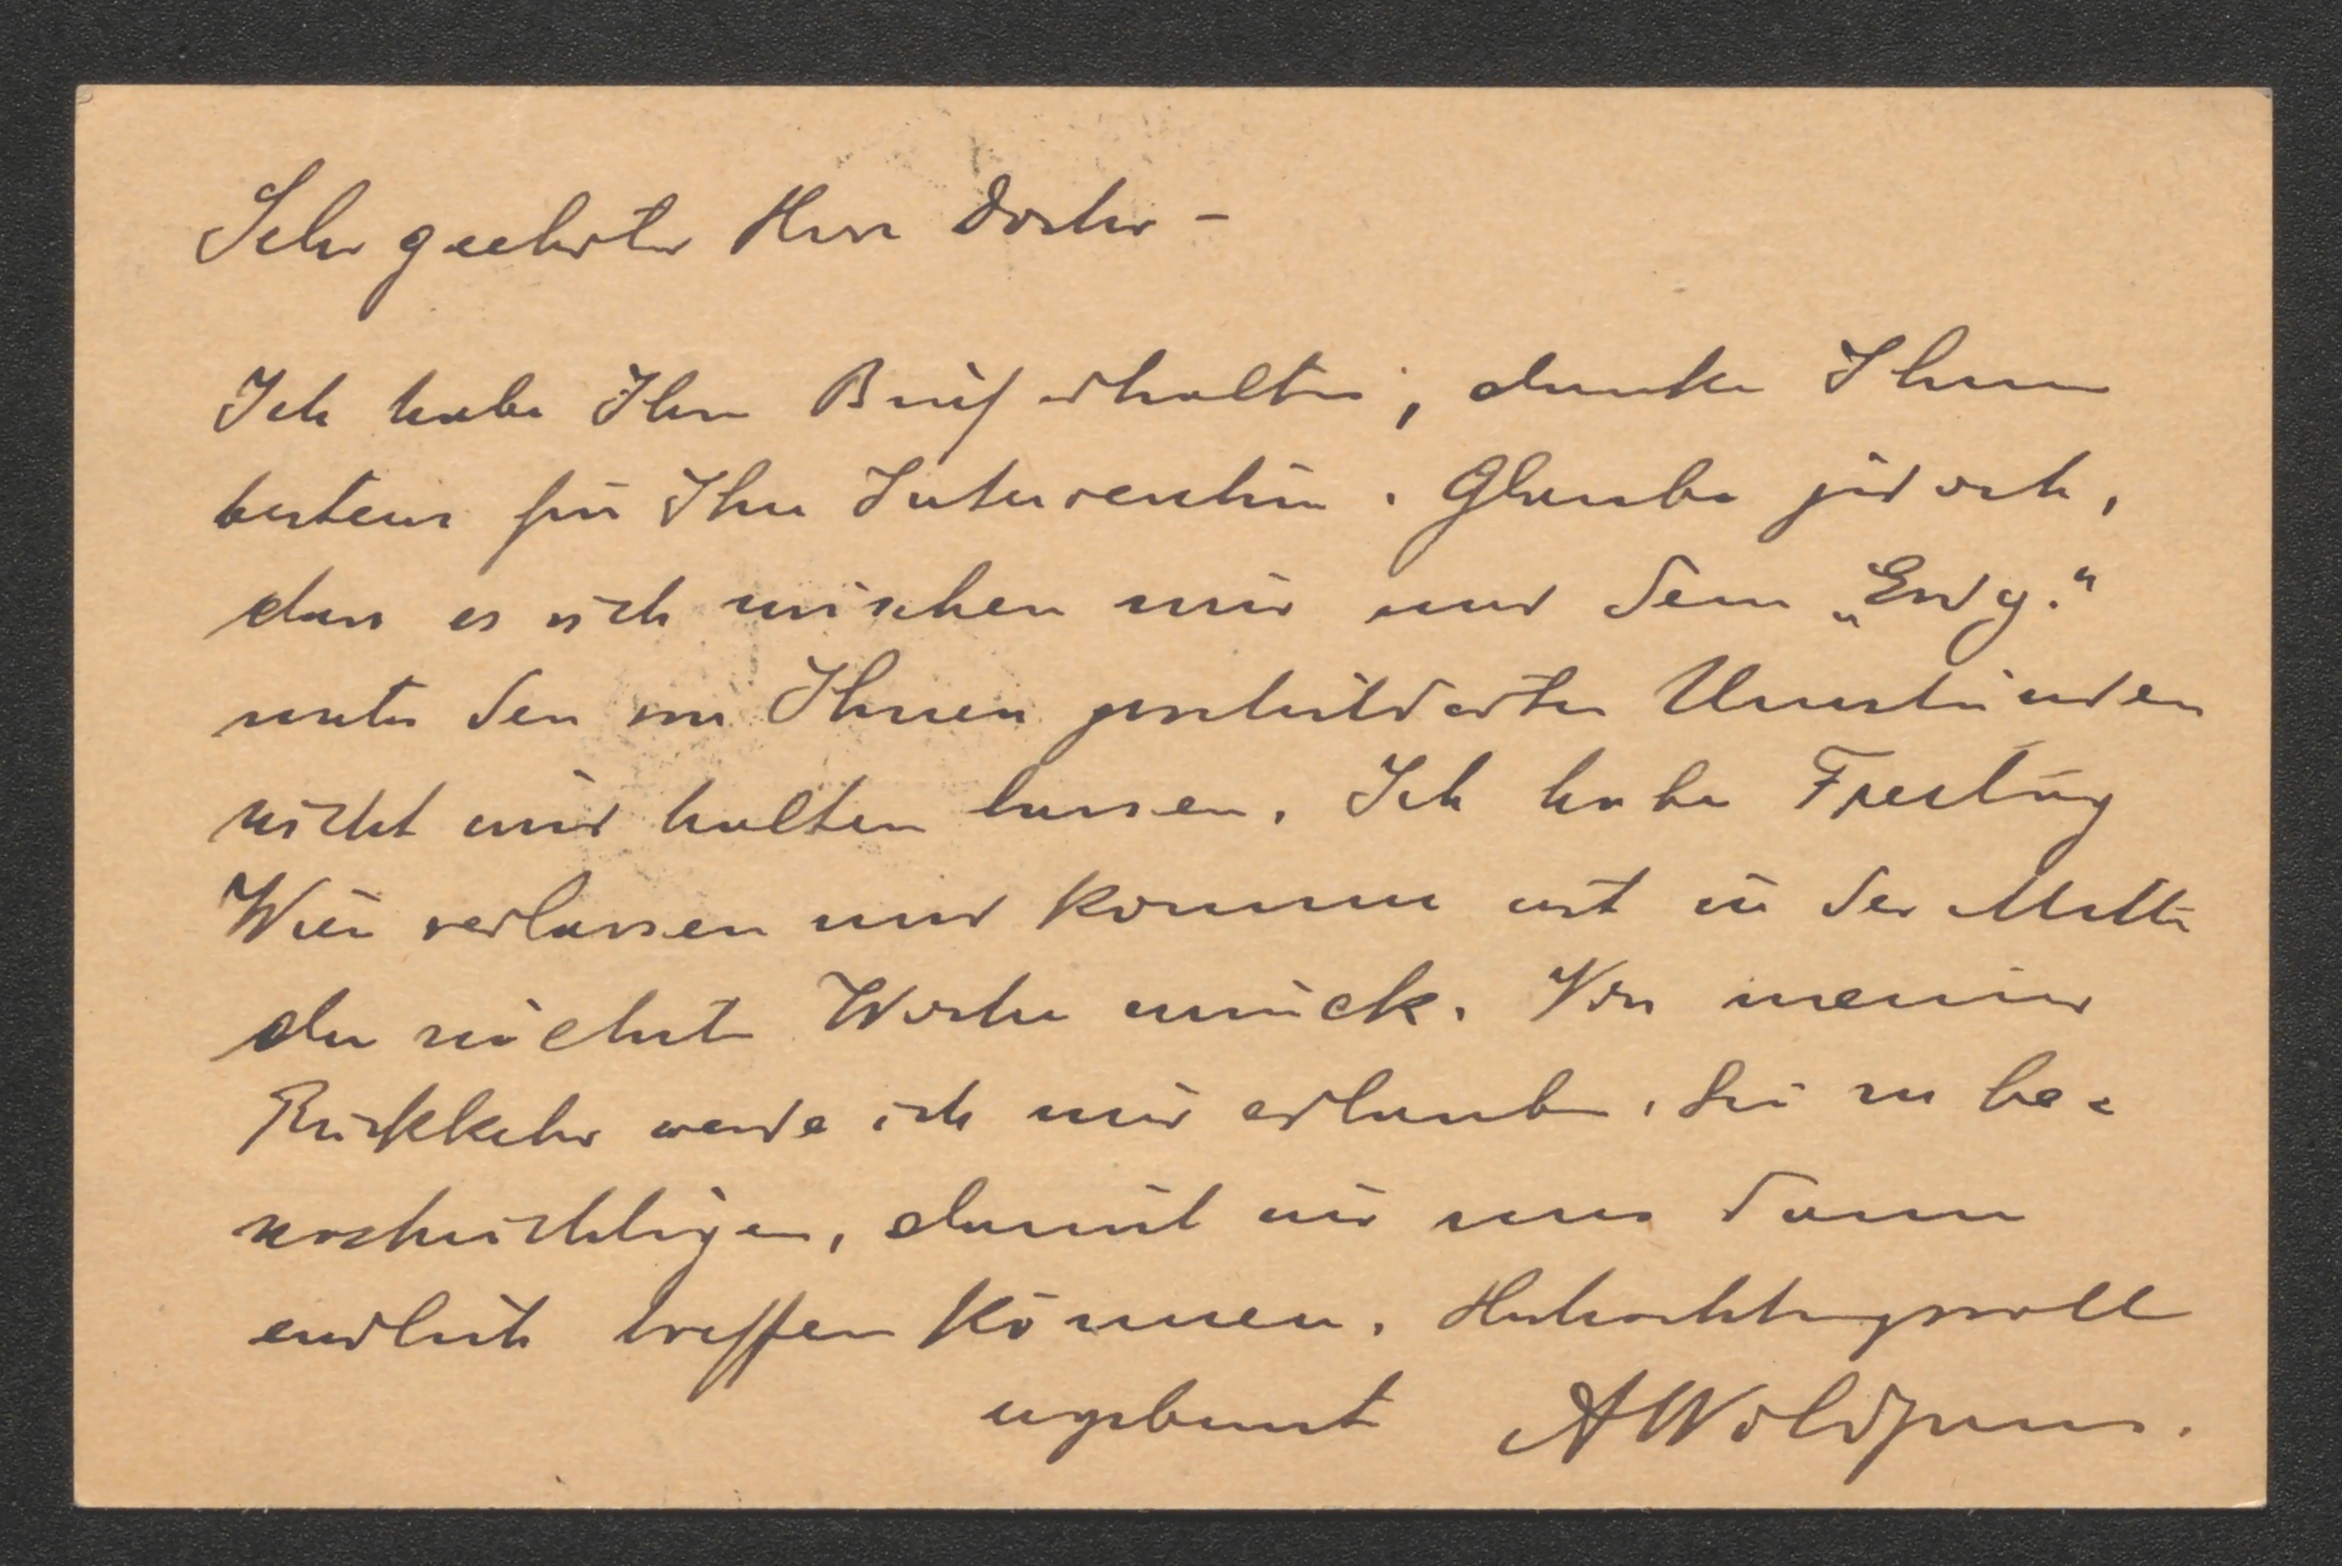 Sehr geehrter Herr Doctor –
Ich habe Ihren Brief erhalten, danke Ihnen
bestens für Ihre Intervention. Glaube jedoch,
dass es sich zwischen mir und dem „Erdg.“
unter den von Ihnen geschilderten Umständen
nicht wird halten lassen. Ich habe Freitag
Wien verlassen und komme erst in der Mitte
der nächsten Woche zurück. Von meiner
Rückkehr werde ich mir erlauben, Sie zu be-
nachrichtigen, damit wir uns dann
endlich treffen können. Hochachtungsvoll
ergebenst